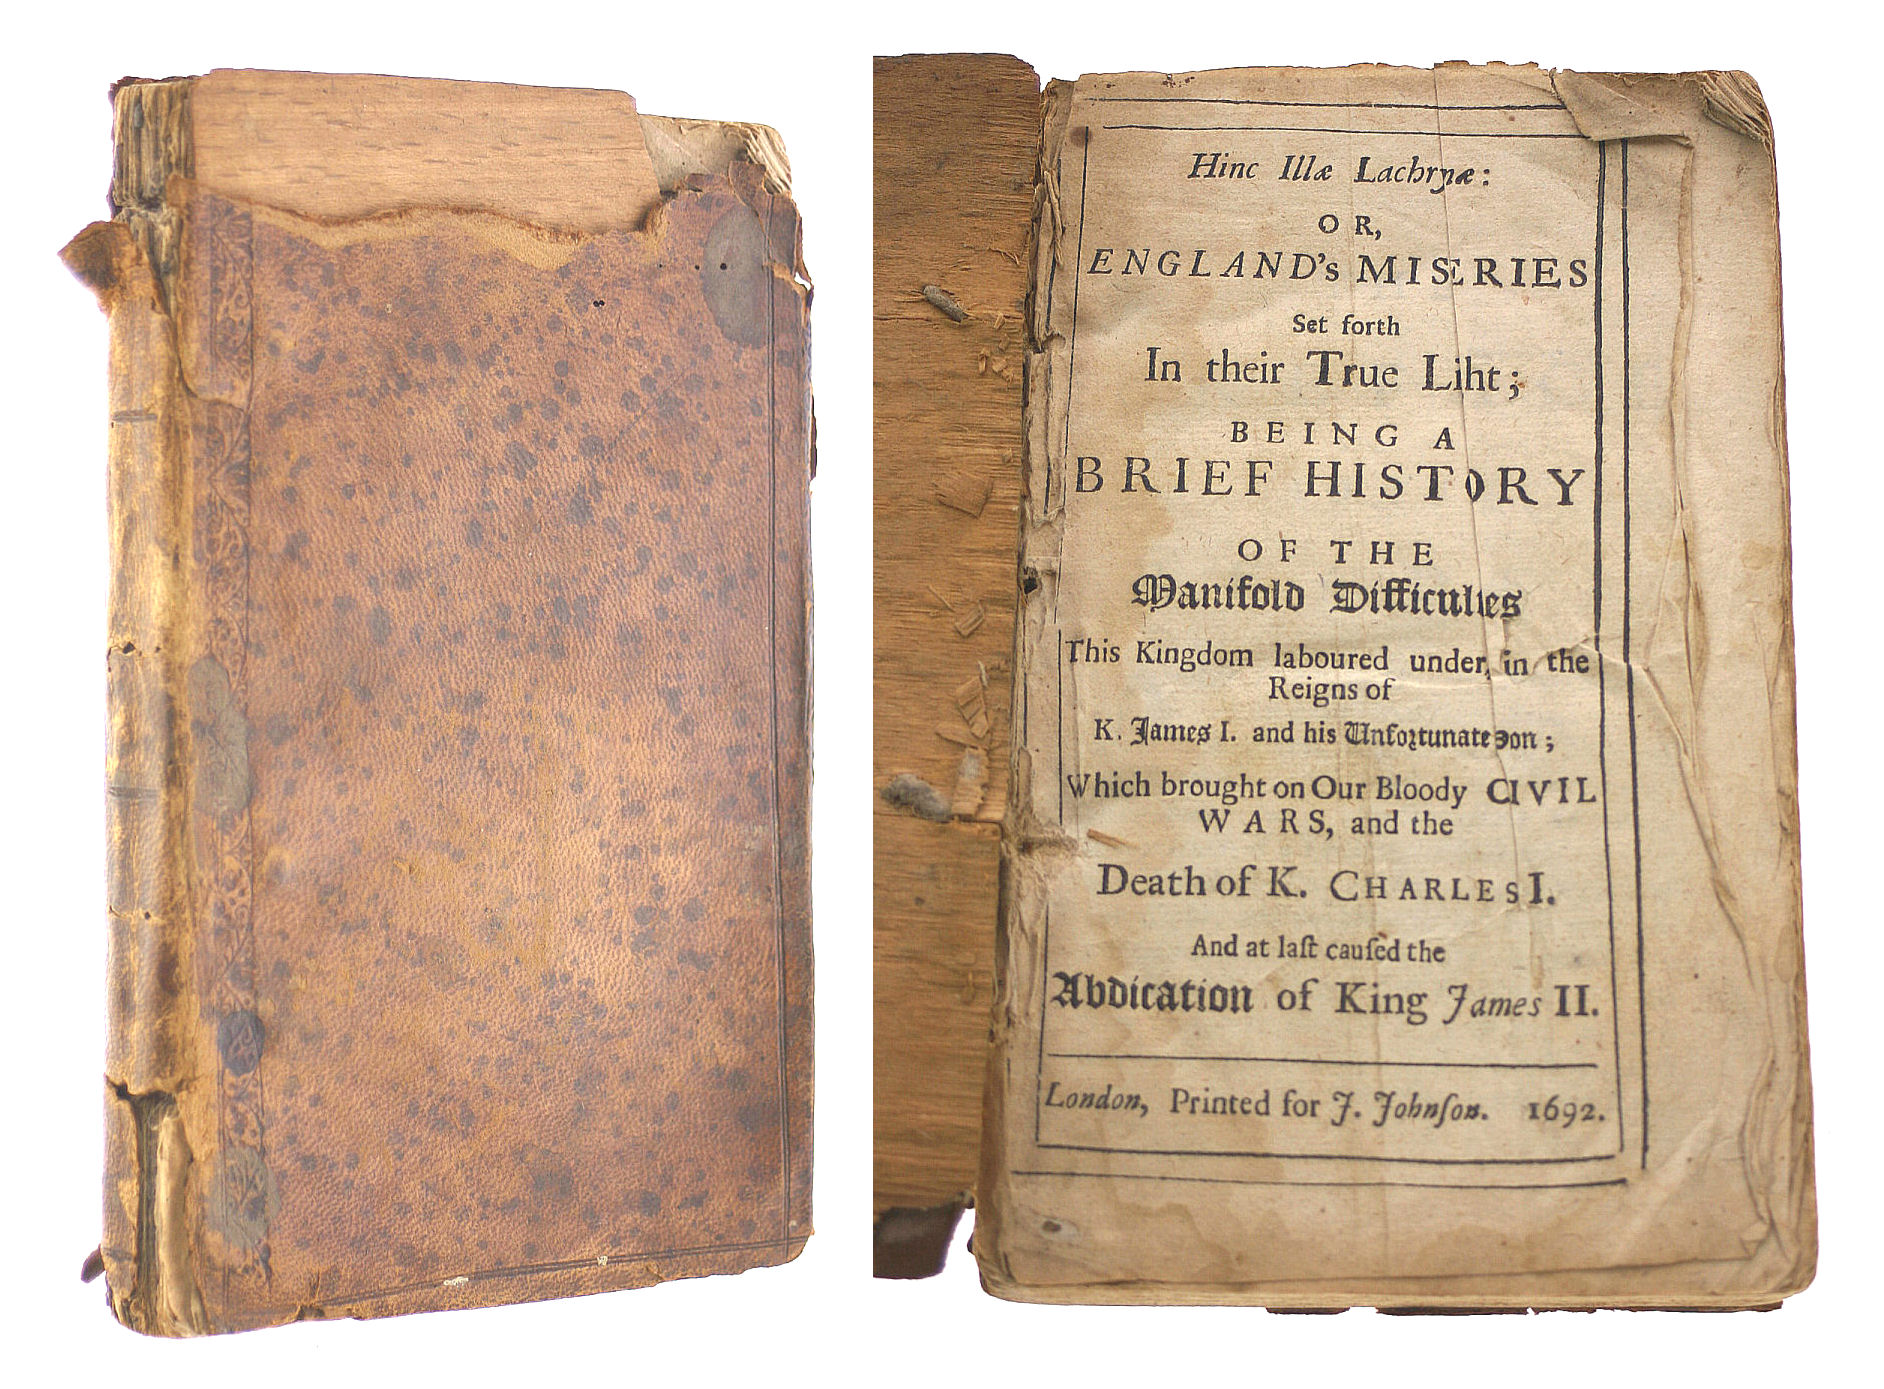 Hinc Illæ Lachryæ:
OR,
ENGLAND's MISERIES
Set forth
In their True Liht;
BEING A
BRIEF HISTORY
OF THE
Manifold Difficulies
This Kingdom laboured under, in the
Reigns of
K. James I. and his Unfortunate Son;
Which brought on Our Bloody CIVIL
WARS, and the
Death of K. CHARLES I.
And at laſt cauſed the
Abdication of King James II.
London, Printed for J. Johnſon. 1692.